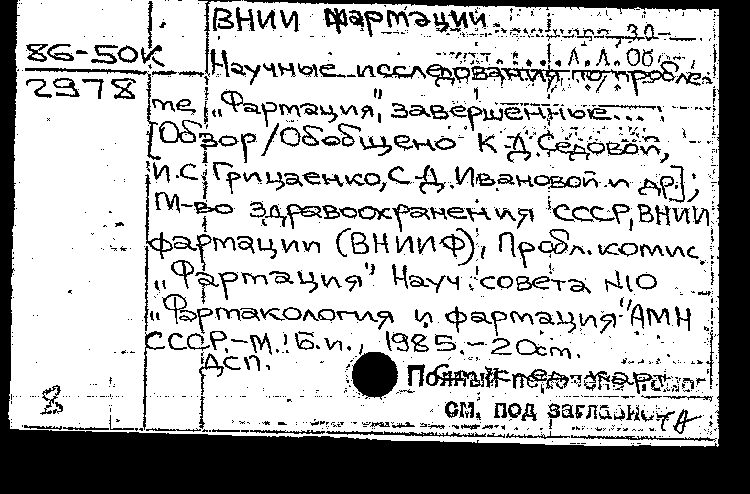 ВНИИ фармации.
86-50К
2978
Научные исследования по пробле-
ме „Фармация", завершенные... :
[Обзор/Обобщено К.Д.Седовой,
И.С.Грицаенко, С.Д.Ивановой и др.];
М-во здравоохранения СССР, ВНИИ
фармации (ВНИИФ), Пробл. комис.
„Фармация" Науч. совета №10
„Фармакология и фармация" АМН
СССР.-М.: Б.и., 1985.-20см.
ДСП.
8
Полный
см. под заглавием